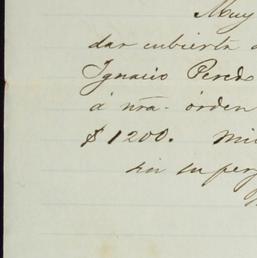 Muy
dar cubierta
Ignacio Peredo
á nra. órden
$1200. Mi
sin su per